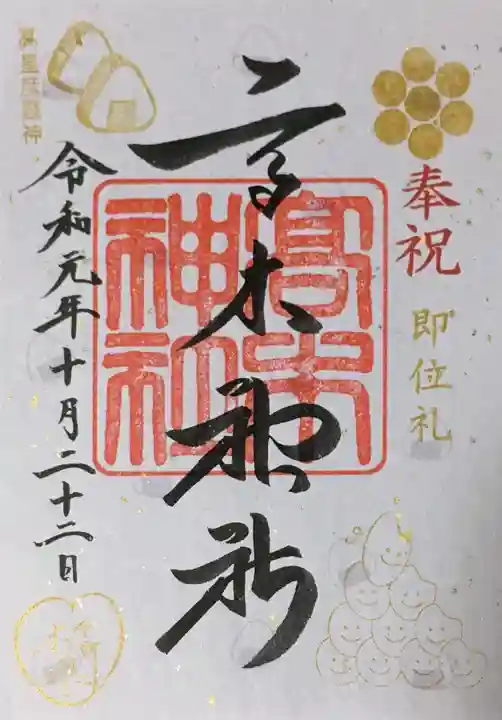 奉祝
即位礼
高木神社
高木神社
令和元年十月二十二日
高皇産靈神